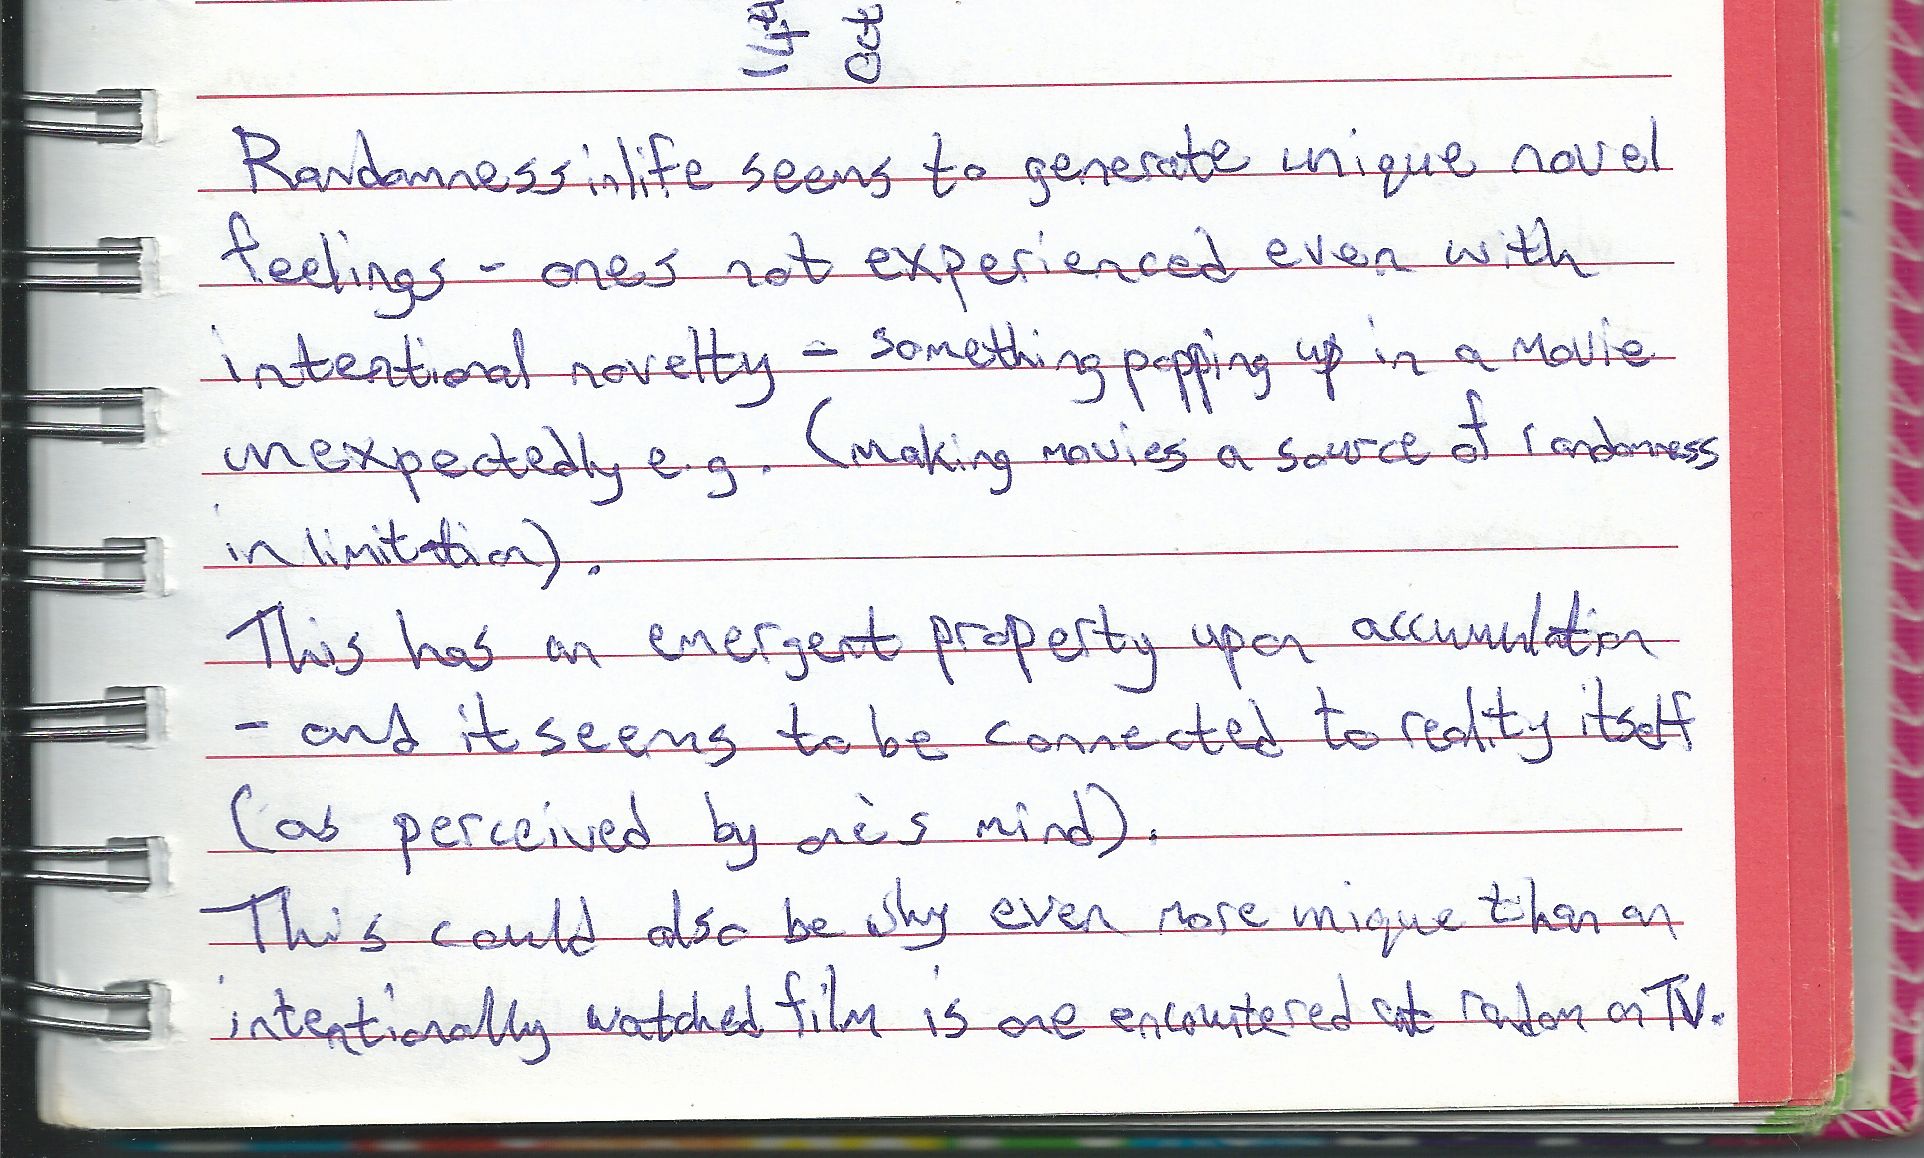 Oct
Randomness in life seems to generate unique novel
feelings - ones not experienced even with
intentional novelty - something popping up in a movie
unexpectedly e.g. (making movies a source of randomness
in limitation).
This has an emergent property upon accumulation
- and it seems to be connected to reality itself
(as perceived by one's mind).
This could also be why even more unique than an
intentionally watched film is one encountered at random on TV.